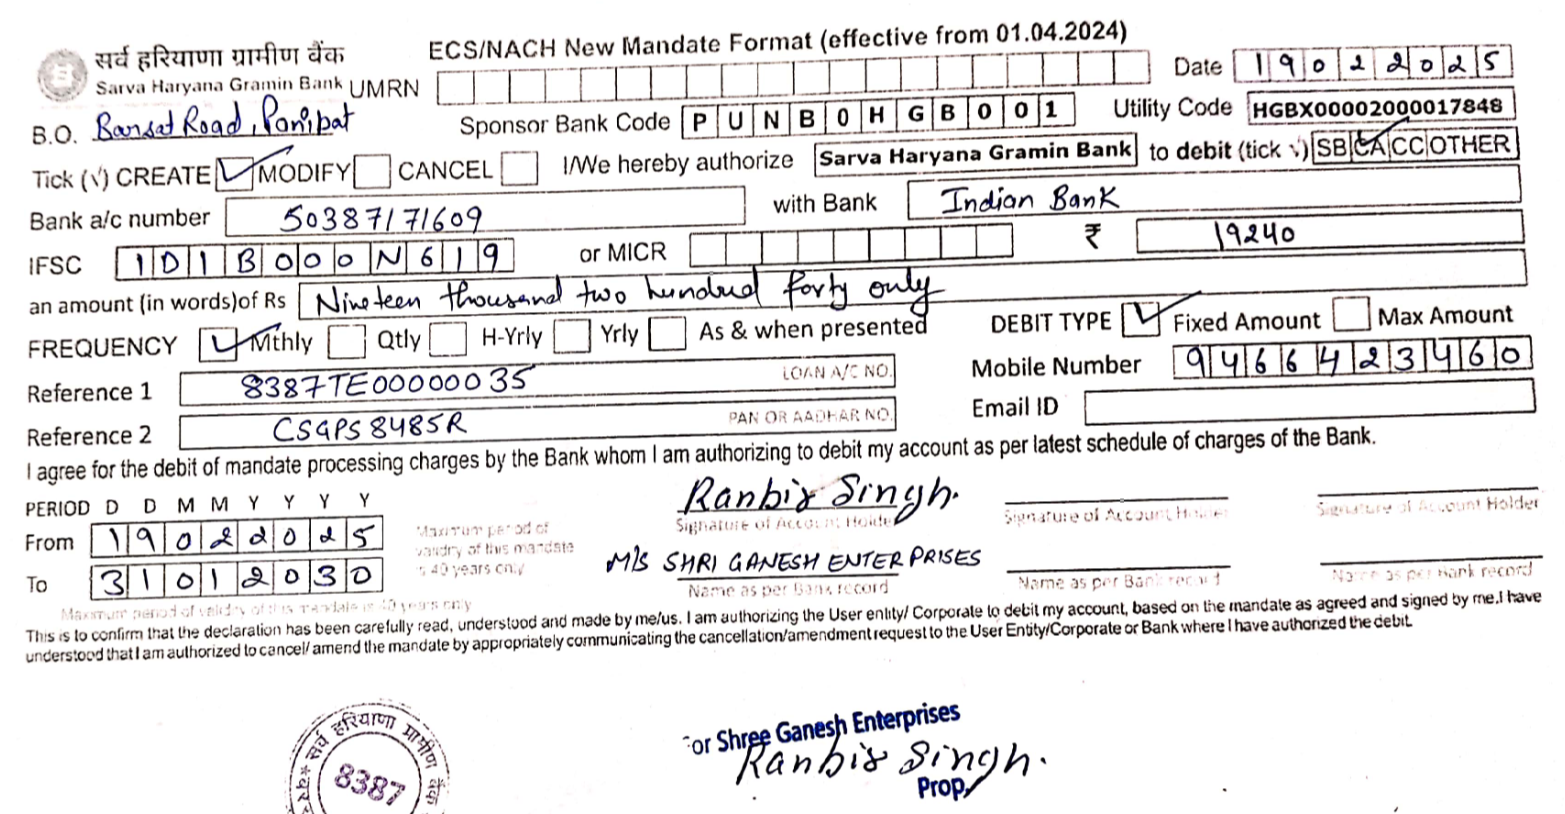 ECS/NACH New Mandate Format (effective from 01.04.2024)
सर्व हरियाणा ग्रामीण बैंक
Sarva Haryana Gramin Bank UMRN Date 19022025
B.O. Barsat Road, Panipat Sponsor Bank Code PUNB0HGB001 Utility Code HGBX00002000017848
Tick (√) CREATE MODIFY CANCEL I/We hereby authorize Sarva Haryana Gramin Bank to debit (tick √) SB CA CC OTHER
Bank a/c number 50387171609 with Bank Indian Bank
IFSC IDIB000N619 or MICR ₹ 19240
an amount (in words)of Rs Nineteen thousand two hundred forty only
FREQUENCY Mthly Qtly H-Yrly Yrly As & when presented DEBIT TYPE Fixed Amount Max Amount
Reference 1 8387TE00000035 LOAN A/C NO. Mobile Number 9466423460
Reference 2 CSGPS8485R PAN OR AADHAR NO. Email ID
I agree for the debit of mandate processing charges by the Bank whom I am authorizing to debit my account as per latest schedule of charges of the Bank.
PERIOD D D M M Y Y Y Y
From 19022025
To 31012030
Maximum period of
validity of this mandate
is 40 years only
Ranbir Singh.
Signature of Account Holder Signature of Account Holder Signature of Account Holder
M/s SHRI GANESH ENTERPRISES
Name as per Bank record Name as per Bank record Name as per Bank record
Maximum period of validity of this mandate is 40 years only
This is to confirm that the declaration has been carefully read, understood and made by me/us. I am authorizing the User entity/ Corporate to debit my account, based on the mandate as agreed and signed by me.I have
understood that I am authorized to cancel/ amend the mandate by appropriately communicating the cancellation/amendment request to the User Entity/Corporate or Bank where I have authorized the debit.
सर्व हरियाणा ग्रामीण बैंक
8387
or Shree Ganesh Enterprises
Ranbir Singh.
Prop.